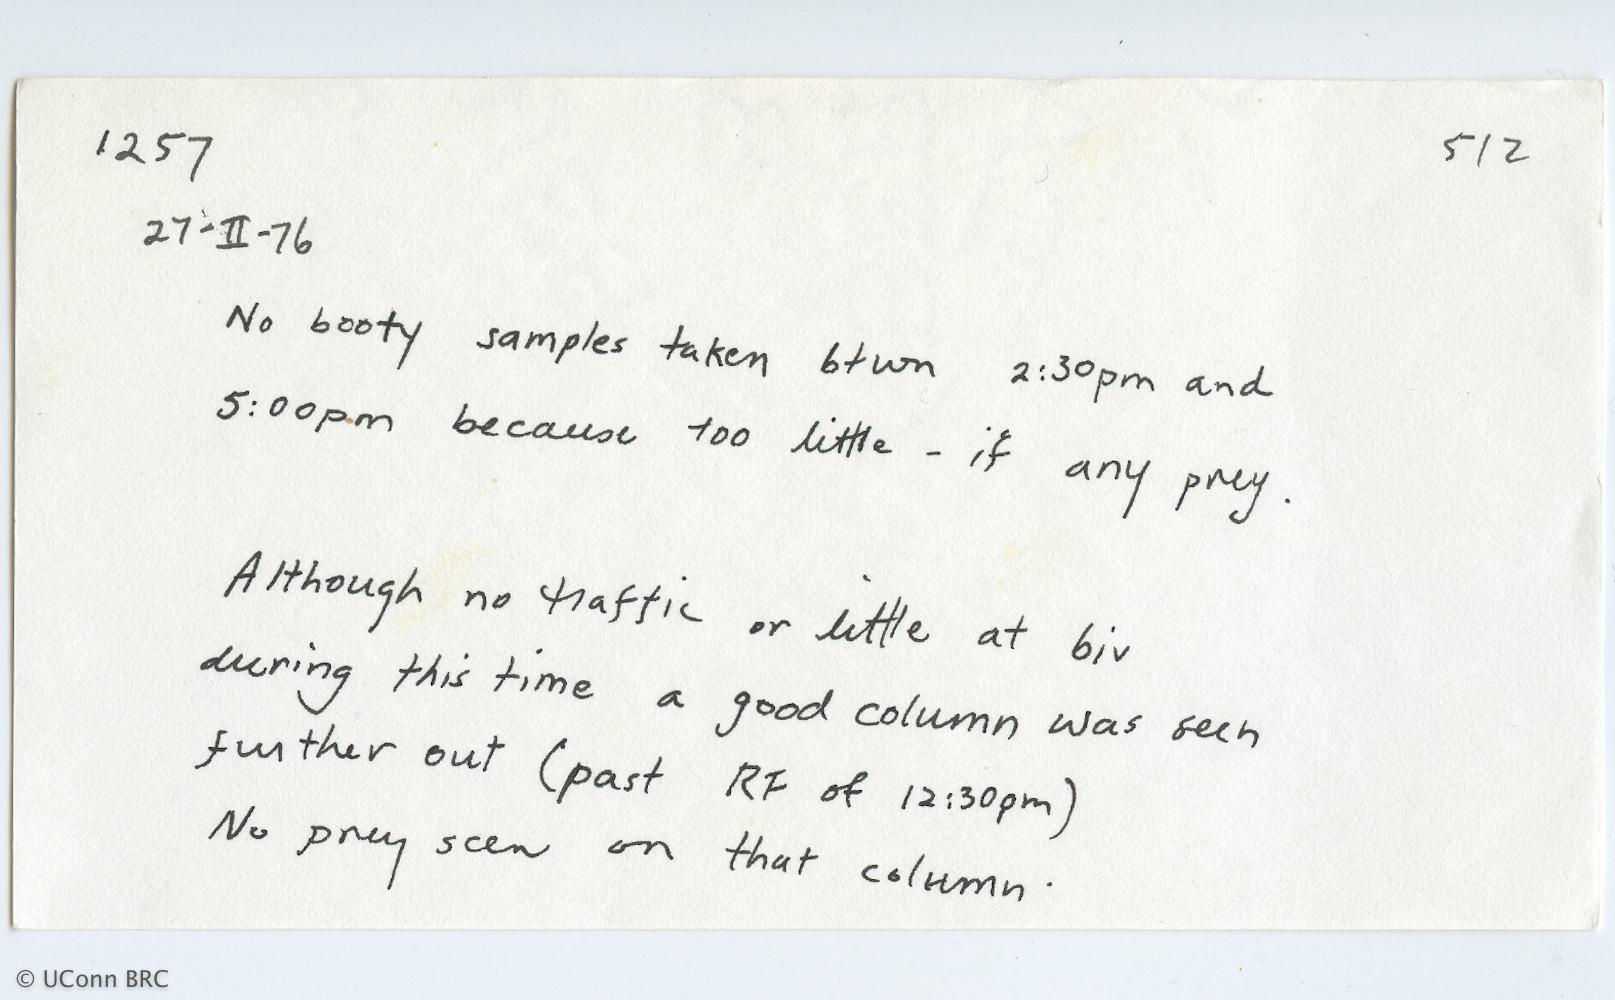 1257 512
27-II-76
No booty samples taken btwn 2:30pm and
5:00pm because too little - if any prey.
Although no traffic or little at biv
during this time a good column was seen
further out (past RF of 12:30pm)
No prey seen on that column.
© UConn BRC